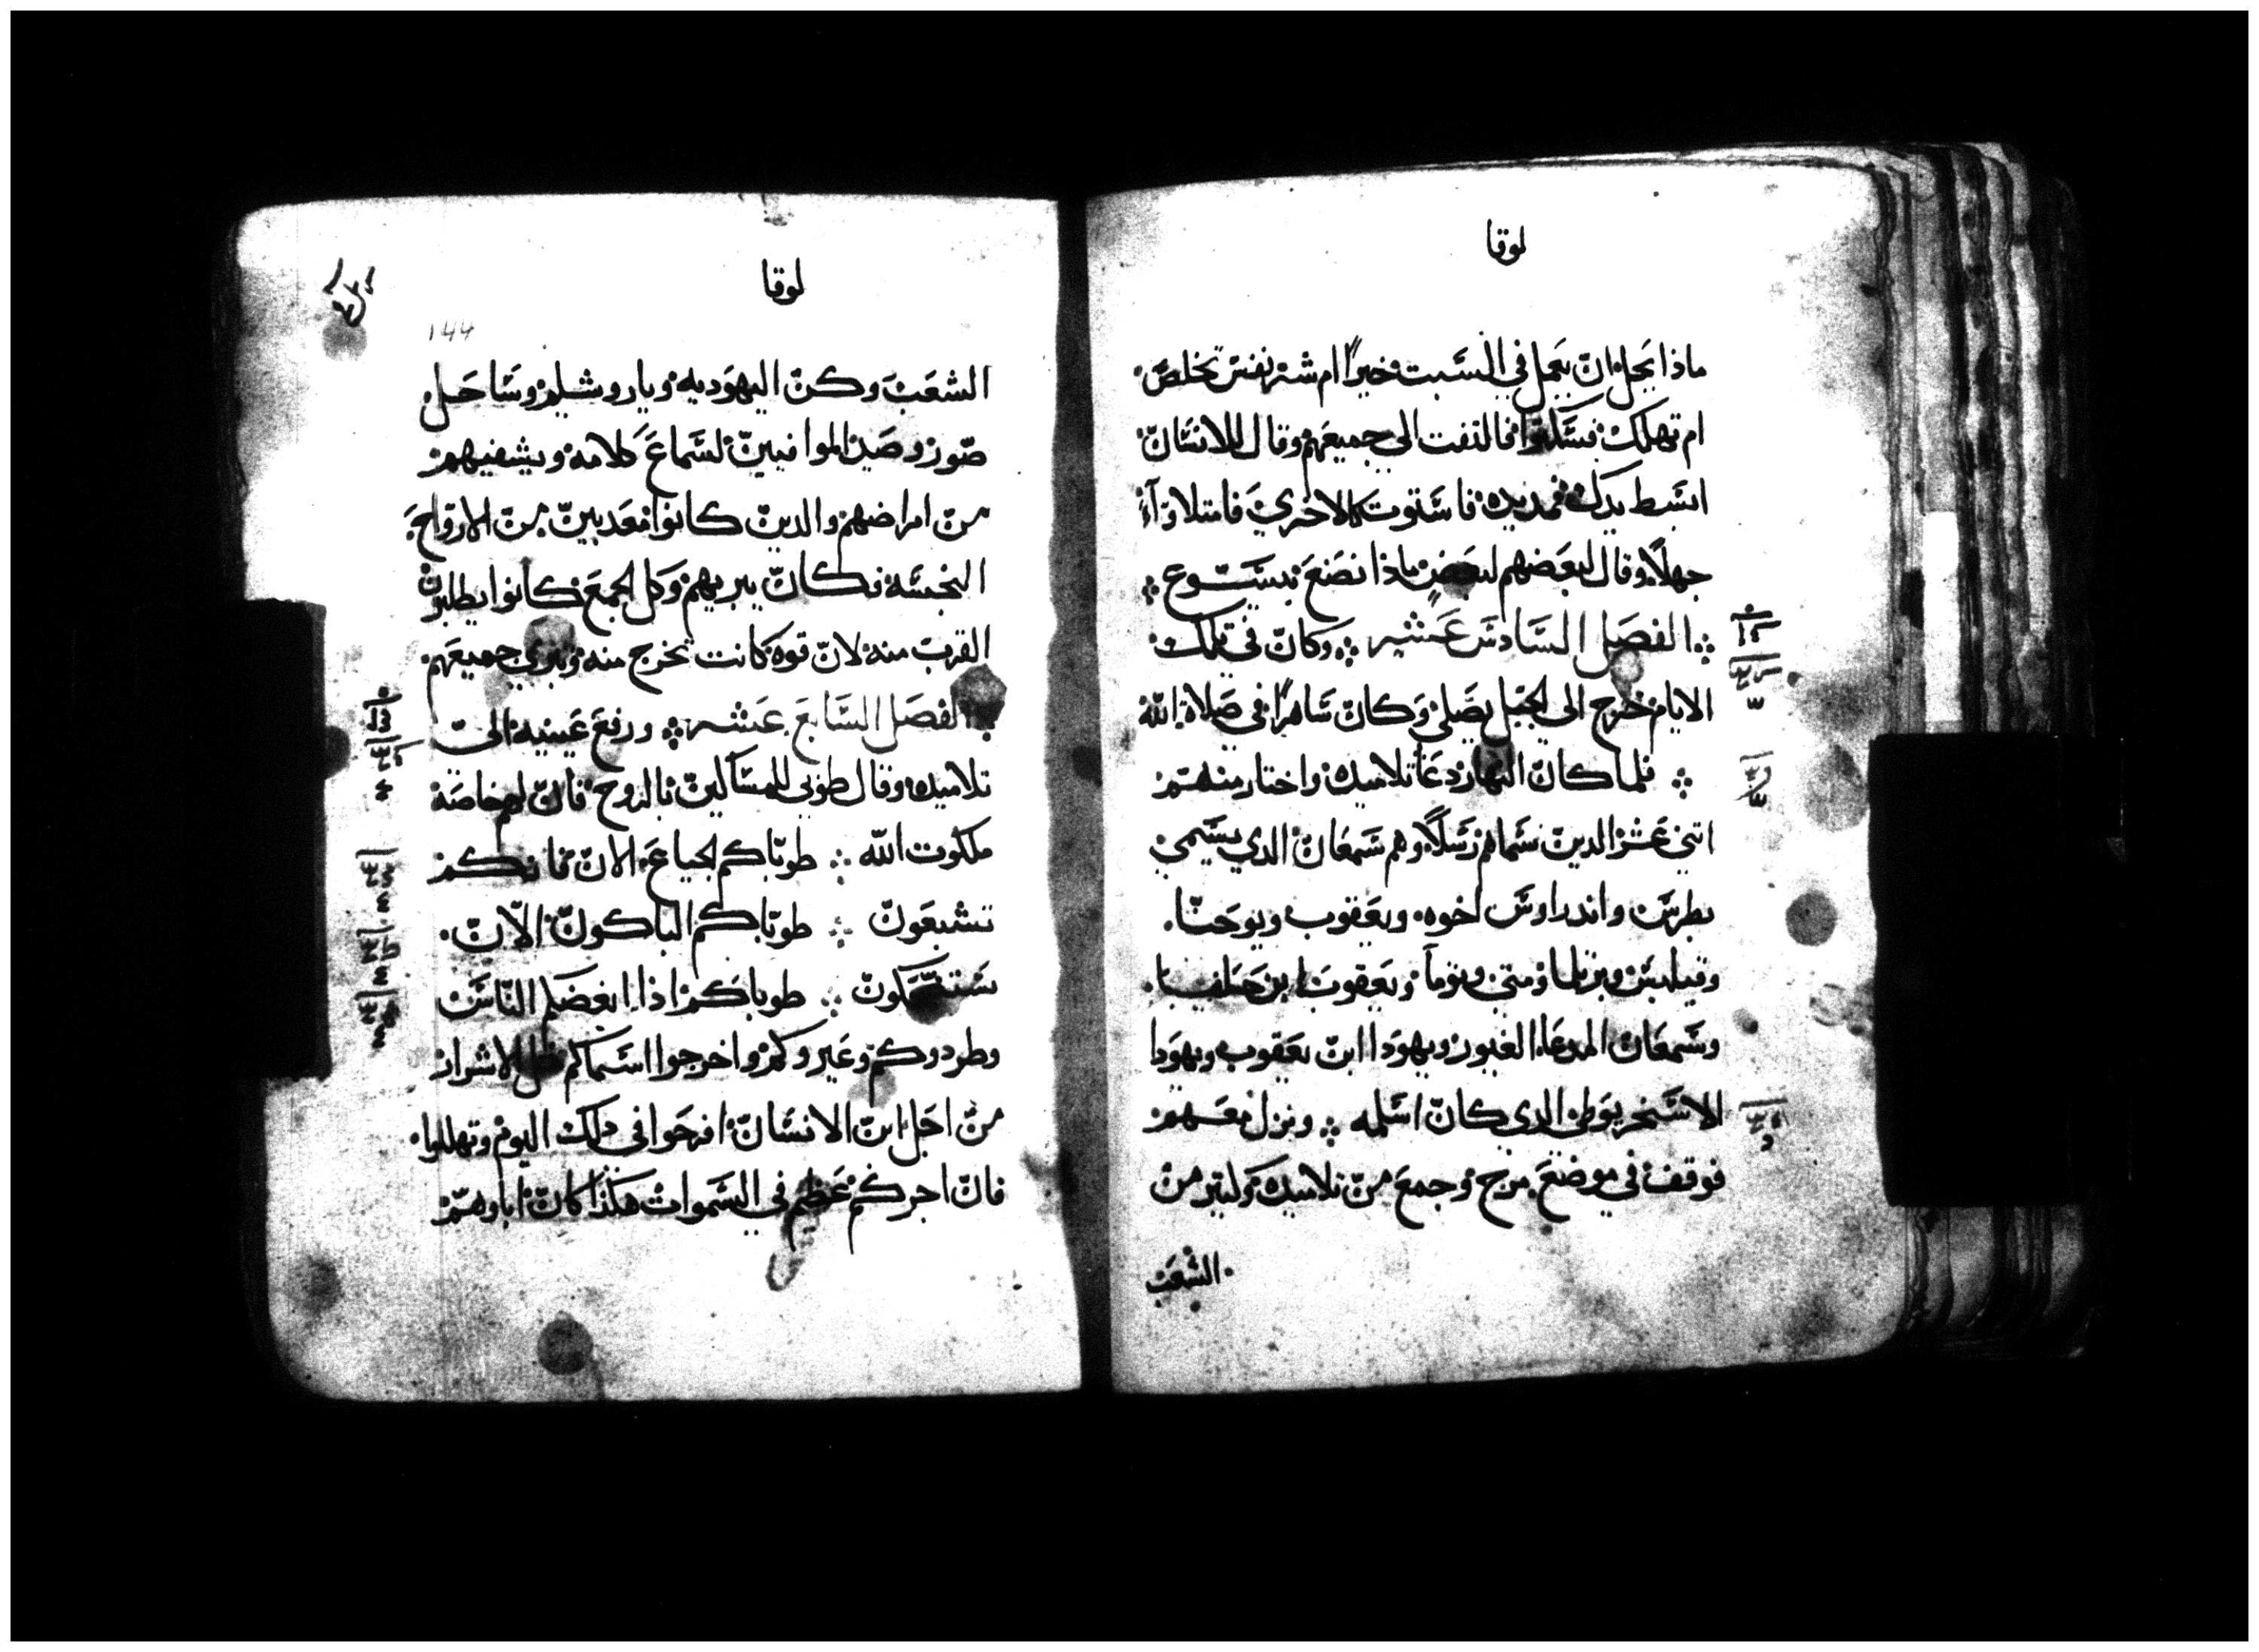 لوقا
ماذا يحل ان يعمل في السبت خيرًا ام شر نفس تخلص
ام تهلك فسكتوا فالتفت الى جميعهم وقال للانسان
ابسط يدك فمد يده فاستوت كالاخري فامتلاوآ
جهلًا وقال بعضهم لبعض ماذا نصنع بيسوع
الفصل السادس عشر وكان في تلك
الايام خرج الى الجبل يصلي وكان ساهرًا في صلاة الله
فلما كان النهار دعا تلاميده واختار منهم
اتني عشر الدين سماهم رسلًا وهم سمعان الدي يسمي
بطرس واندراوس اخوه ويعقوب ويوحنا
وفيلبس وبرتلما ومتي وتوما ويعقوب ابن حلفيا
وسمعان المدعا الغيور ويهودا ابن يعقوب ويهودا
الاسخريوطي الدي كان اسلمه ونزل معهم
فوقف في موضع مرج وجمع من تلاميده وكتير من
الشعب
لوقا
144
الشعب وكن اليهوديه وياروشليم وساحل
صور وصيدا الموافيين لسماع كلامه ويشفيهم
من امراضهم والدين كانوا معدبين من الارواح
النجسه فكان يبريهم وكل الجمع كانوا يطلبون
القرب منه لان قوه كانت تخرج منه وتبري جميعهم
الفصل السابع عشر ورفع عينيه الى
تلاميده وقال طوبي للمساكين بالروح فان لهم خاصة
ملكوت الله طوباكم الجياع الان فانكم
تشبعون طوباكم الباكون الان
ستضحكون طوباكم اذا ابغضكم الناس
وطردوكم وعيروكم واخرجوا اسماكم مثل الاشرار
من اجل ابن الانسان افرحوا في دلك اليوم وتهللوا
فان اجركم عظيم في السموات هكذا كان اباوهم